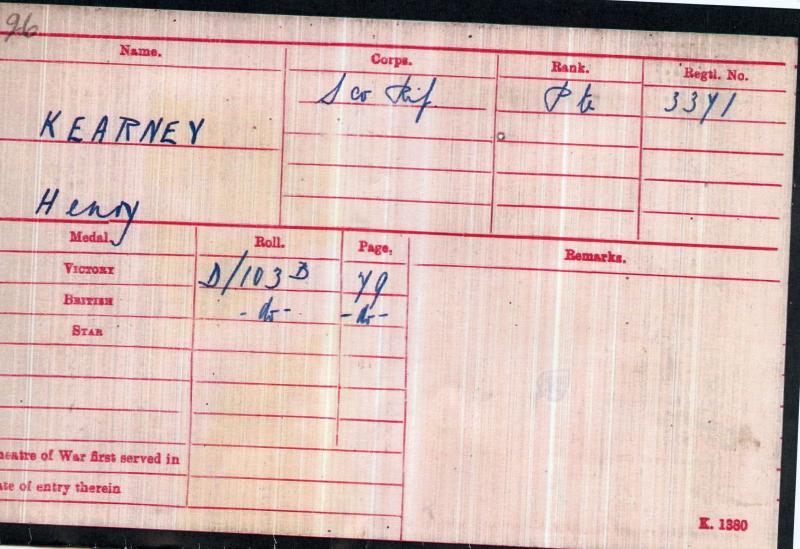 96
Name. Corps. Rank. Regtl. No.
Sco Rif Pte 3371
KEARNEY
Henry
Medal. Roll. Page. Remarks.
VICTORY D/103 B 79
BRITISH -do- -do-
STAR
heatre of War first served in
ate of entry therein
K. 1380